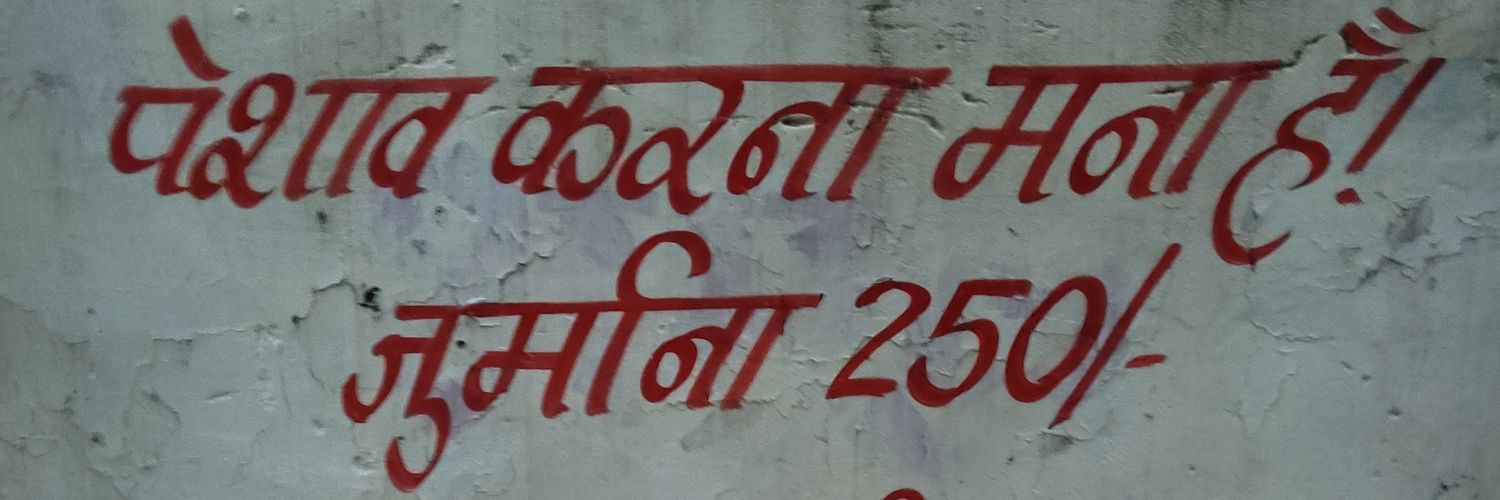 पेशाव करना मना है!
जुर्माना 250/-